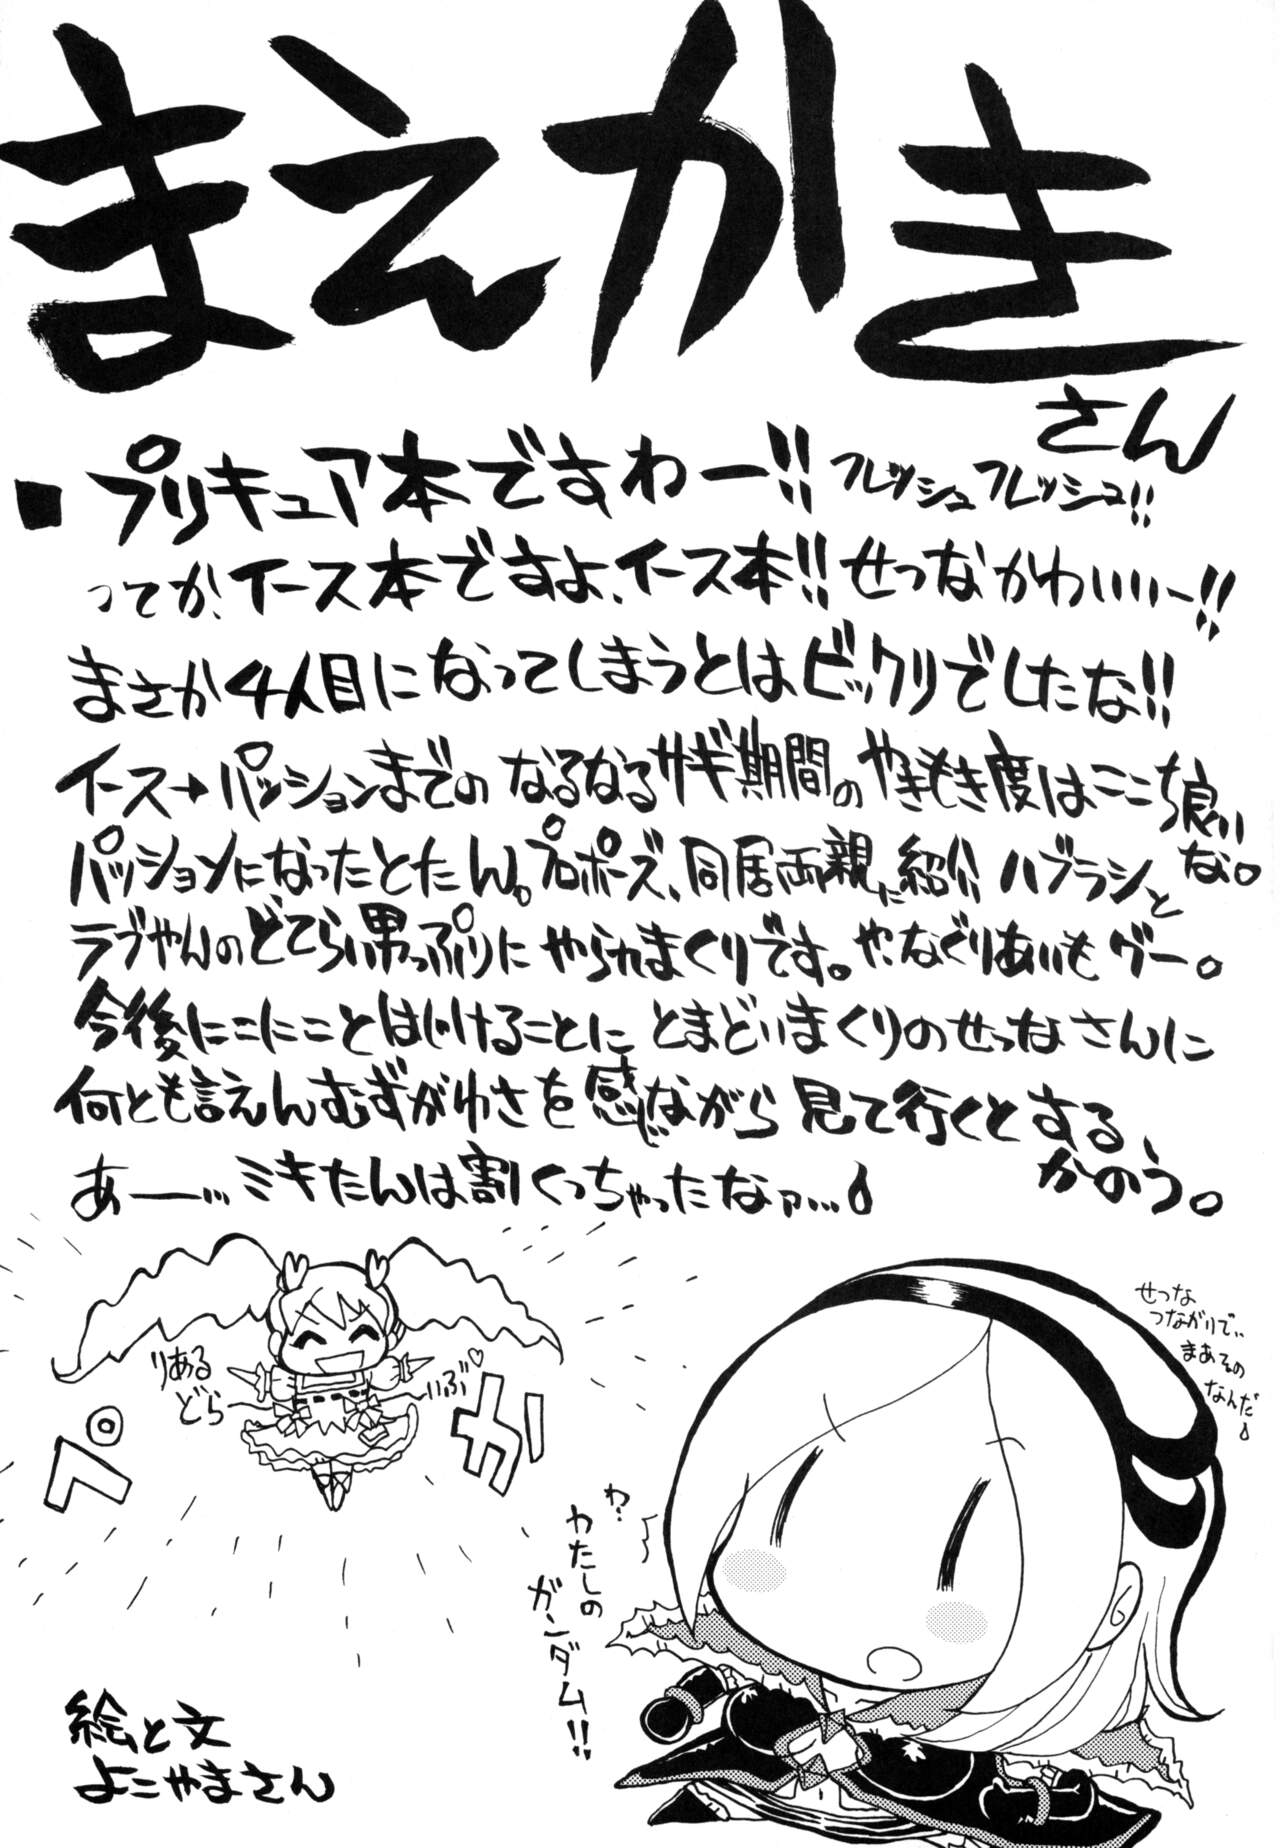 まえかき
さん
■プリキュア本ですわー!! フレッシュフレッシュ!!
ってか、イース本ですよ、イース本!! せつなかわいいー!!
まさか4人目になってしまうとはビックリでしたな!!
イース→パッションまでの なるなるサギ期間の やきもき度はここち良いな。
パッションになったとたん。プロポーズ、同居両親に紹介 ハブラシと
ラブやんのどてらい男っぷりに やられまくりです。や、なぐりあいもグー。
今後にこにことはじけることに とまどいまくりのせつなさんに
何とも言えんむずがゆさを 感じながら 見て行くとするかのう。
あー… ミキたんは割くっちゃったなァ…
りある
どら
いぶ♡
ペカ
せつな
つながりで…
まあその
なんだ
わ?
わたしの
ガンダム!!
絵と文
よこやまさん